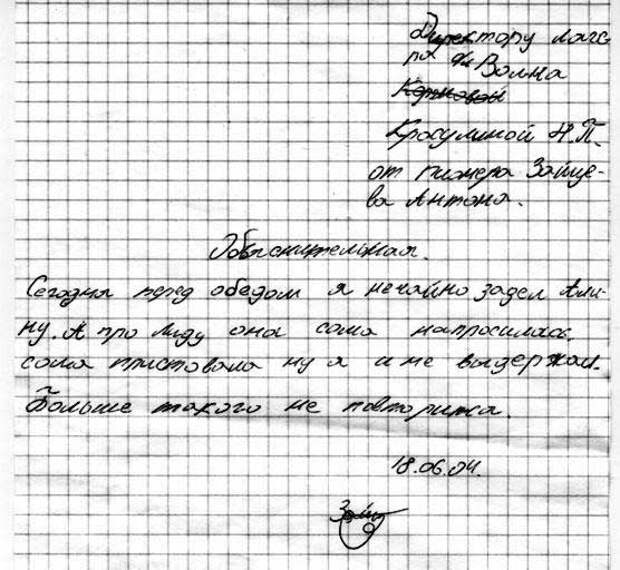 Директору лаге
ря "Волна
Корнновой
Красулиной Н.П.
от пионера Зайце-
ва Антона.
Объяснительная.
Сегодня перед обедом я нечайно задел Али-
ну. А про Лиду она сама напросилась.
сама пристовала ну я и не выдержал.
Больше такого не повторитса.
18.06.04.
Зайц